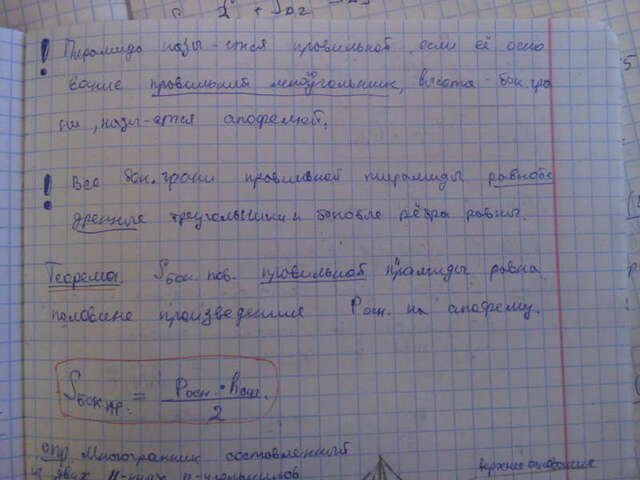 ! Пирамида назы-ется правильной, если её осно
вание правильный многоугольник, высота бок.гра
ни, назы-ется апофемой.
! Все бок. грани правильной пирамиды равнобе
дренные треугольники и боковые рёбра равны.
Теорема Sбок.пов. правильной пирамиды равна
половине произведения Pосн. на апофему.
Sбок.пр. = Pосн. · hбок. / 2
опр Многогранник составленный
и двух n-угольников
верхнее основание